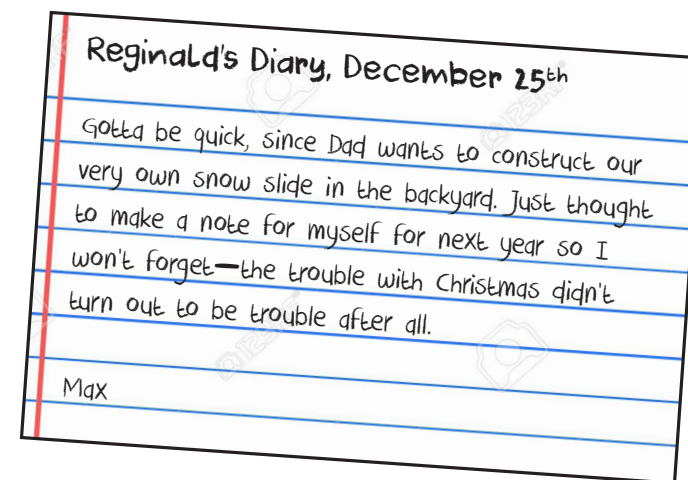 Reginald's Diary, December 25th
Gotta be quick, since Dad wants to construct our
very own snow slide in the backyard. Just thought
to make a note for myself for next year so I
won't forget—the trouble with Christmas didn't
turn out to be trouble after all.
Max